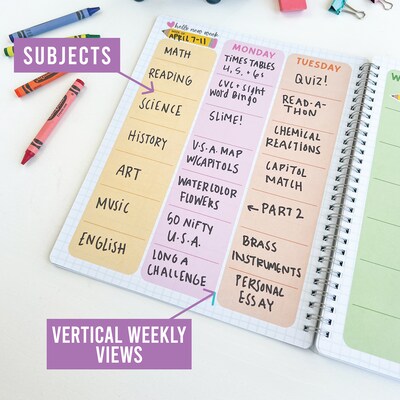 SUBJECTS
hello new week
APRIL 7-11
MATH
READING
SCIENCE
HISTORY
ART
MUSIC
ENGLISH
MONDAY
TIMES TABLES
4, 5, + 6s
CVC + SIGHT
WORD BINGO
SLIME!
U.S.A. MAP
W/CAPITOLS
WATERCOLOR
FLOWERS
50 NIFTY
U.S.A.
LONG A
CHALLENGE
TUESDAY
QUIZ!
READ-A-
THON
CHEMICAL
REACTIONS
CAPITOL
MATCH
←PART 2
BRASS
INSTRUMENTS
PERSONAL
ESSAY
W
VERTICAL WEEKLY
VIEWS